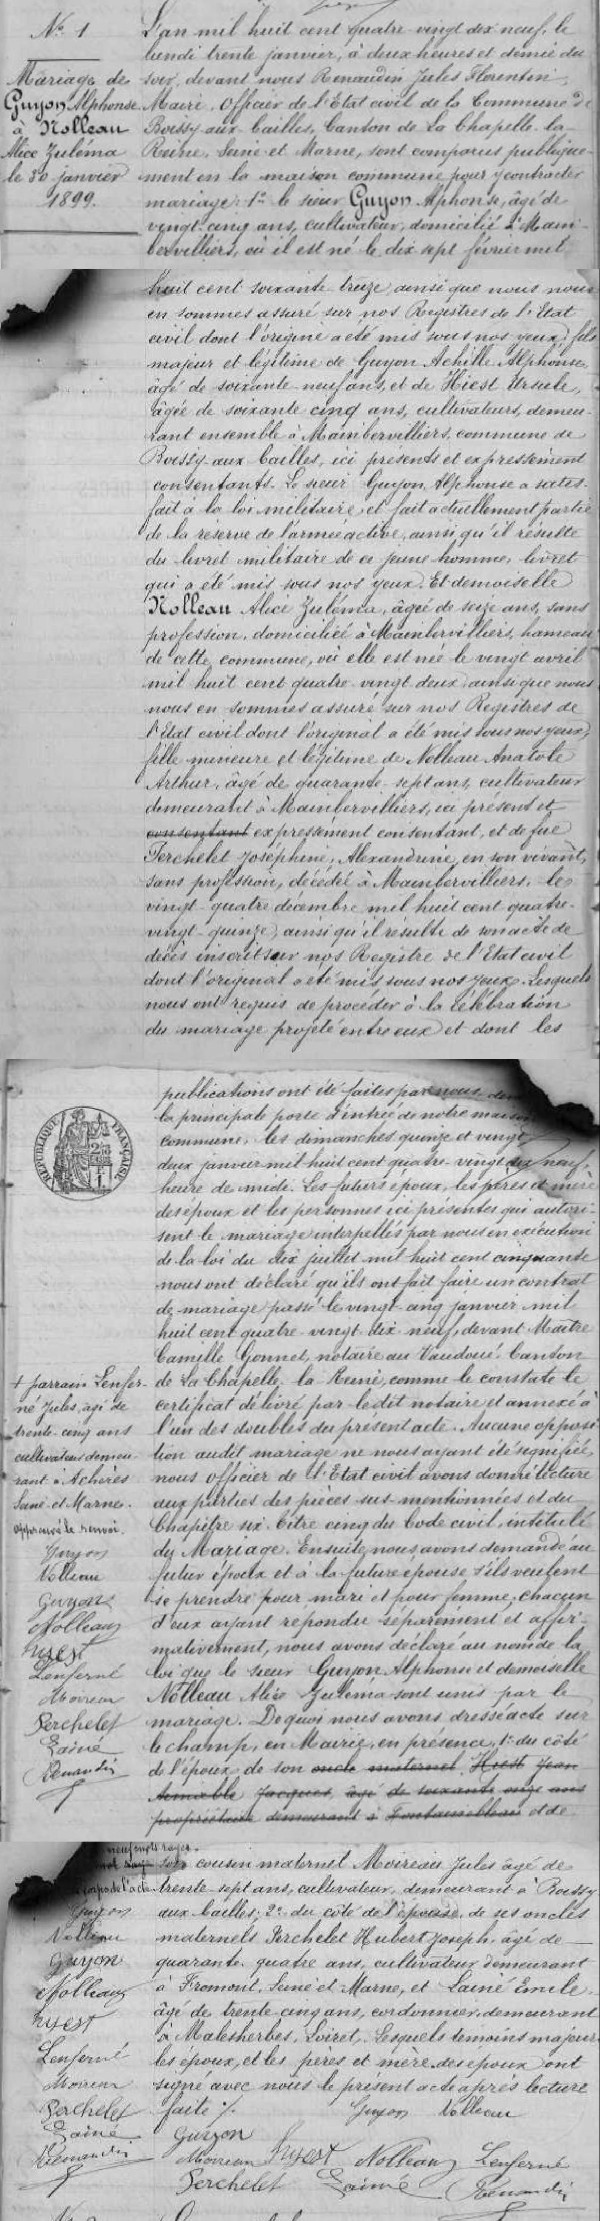 N° 1
Mariage de
Guyon Alphonse
à Nolleau
Alice Zuléma
le 30 janvier
1899.
L'an mil huit cent quatre-vingt dix neuf, le
lundi trente janvier, à deux heures et demie du
soir, devant nous Renaudin Jules Florentin,
Maire, Officier de l'Etat civil de la Commune de
Boissy-aux-Cailles, Canton de La Chapelle-la-
Reine, Seine et Marne, sont comparus publique-
ment en la maison commune pour y contracter
mariage: 1° le sieur Guyon Alphonse, âgé de
vingt-cinq ans, cultivateur, domicilié à Main-
bervilliers, où il est né le dix sept février mil
huit cent soixante-treize, ainsi que nous nous
en sommes assuré sur nos Registres de l'Etat
civil dont l'origine a été mis sous nos yeux, fils
majeur et légitime de Guyon Achille Alphonse,
âgé de soixante-neuf ans, et de Hiest Ursule,
âgée de soixante cinq ans, cultivateurs, demeu-
rant ensemble à Mainbervilliers, commune de
Boissy-aux-Cailles, ici présents et expressément
consentants. Le sieur Guyon Alphonse a satis-
fait à la loi militaire et fait actuellement partie
de la réserve de l'armée active, ainsi qu'il résulte
du livret militaire de ce jeune homme, livret
qui a été mis sous nos yeux. Et demoiselle
Nolleau Alice Zuléma, âgée de seize ans, sans
profession, domiciliée à Mainbervilliers, hameau
de cette commune, où elle est née le vingt avril
mil huit cent quatre-vingt deux, ainsi que nous
nous en sommes assuré sur nos Registres de
l'Etat civil dont l'original a été mis sous nos yeux,
fille mineure et légitime de Nolleau Anatole
Arthur, âgé de quarante-sept ans, cultivateur
demeurant à Mainbervilliers, ici présent et
consentant expressément consentant, et de fue
Perchelet Joséphine, Alexandrine, en son vivant,
sans profession, décédé à Mainbervilliers, le
vingt-quatre décembre mil huit cent quatre-
vingt-quinze, ainsi qu'il résulte de son acte de
décès inscrit sur nos Registre de l'Etat civil
dont l'original a été mis sous nos yeux. Lesquels
nous ont requis de procéder à la célébration
du mariage projeté entre eux et dont les
RÉPUBLIQUE FRANÇAISE
publications ont été faites par nous,
la principale porte d'entrée de notre maison
commune, les dimanches quinze et vingt
deux janvier mil huit cent quatre-vingt dix neuf,
heure de midi. Les futurs époux, les pères et mère
des époux et les personnes ici présentes qui autori-
sent le mariage interpellés par nous en exécution
de la loi du dix juillet mil huit cent cinquante
nous ont déclaré qu'ils ont fait faire un contrat
de mariage passé le vingt-cinq janvier mil
huit cent quatre-vingt dix neuf, devant Maître
Camille Gonnet, notaire au Vaudoué, Canton
de La Chapelle-la-Reine, comme le constate le
certificat délivré par le dit notaire et annexé à
l'un des doubles du présent acte. Aucune opposi-
tion audit mariage ne nous ayant été signifiée,
nous officier de l'Etat civil avons donné lecture
aux parties des pièces sus-mentionnées et du
Chapitre six, Titre cinq du Code civil, intitulé
du Mariage. Ensuite, nous avons demandé au
futur époux et à la future épouse s'ils veulent
se prendre pour mari et pour femme, chacun
d'eux ayant répondu séparément et affir-
mativement, nous avons déclaré au nom de la
loi que le sieur Guyon Alphonse et demoiselle
Nolleau Alice Zuléma sont unis par le
mariage. De quoi nous avons dressé acte sur
le champ, en Mairie, en présence, 1° du côté
de l'époux de son oncle maternel Hiest Jean
Jacques, âgé de soixante onze ans
propriétaire demeurant à Fontainebleau et de
+ parrain Lenfer-
né Jules, âgé de
trente-cinq ans
cultivateur demeu-
rant à Achères
Seine-et-Marne.
approuvé le renvoi.
Guyon
Nolleau
Guyon
Nolleau
hyest
Lenferné
Moireau
Perchelet
Lainé
Renaudin
son cousin maternel Moireau Jules âgé de
trente-sept ans, cultivateur, demeurant à Boissy
aux Cailles; 2° du côté de l'épouse, de ses oncles
maternels Perchelet Hubert Joseph, âgé de
quarante-quatre ans, cultivateur demeurant
à Fromont, Seine et Marne, et Lainé Emile,
âgé de trente-cinq ans, cordonnier, demeurant
à Malesherbes, Loiret. Lesquels témoins majeurs
les époux, et les pères et mère des époux ont
signé avec nous le présent acte après lecture
faite %.
Guyon
Nolleau
Guyon
Nolleau
hyest
Lenferné
Moireau
Perchelet
Lainé
Renaudin
Guyon Nolleau
Guyon
Moireau hyest Nolleau Lenferné
Perchelet Lainé Renaudin